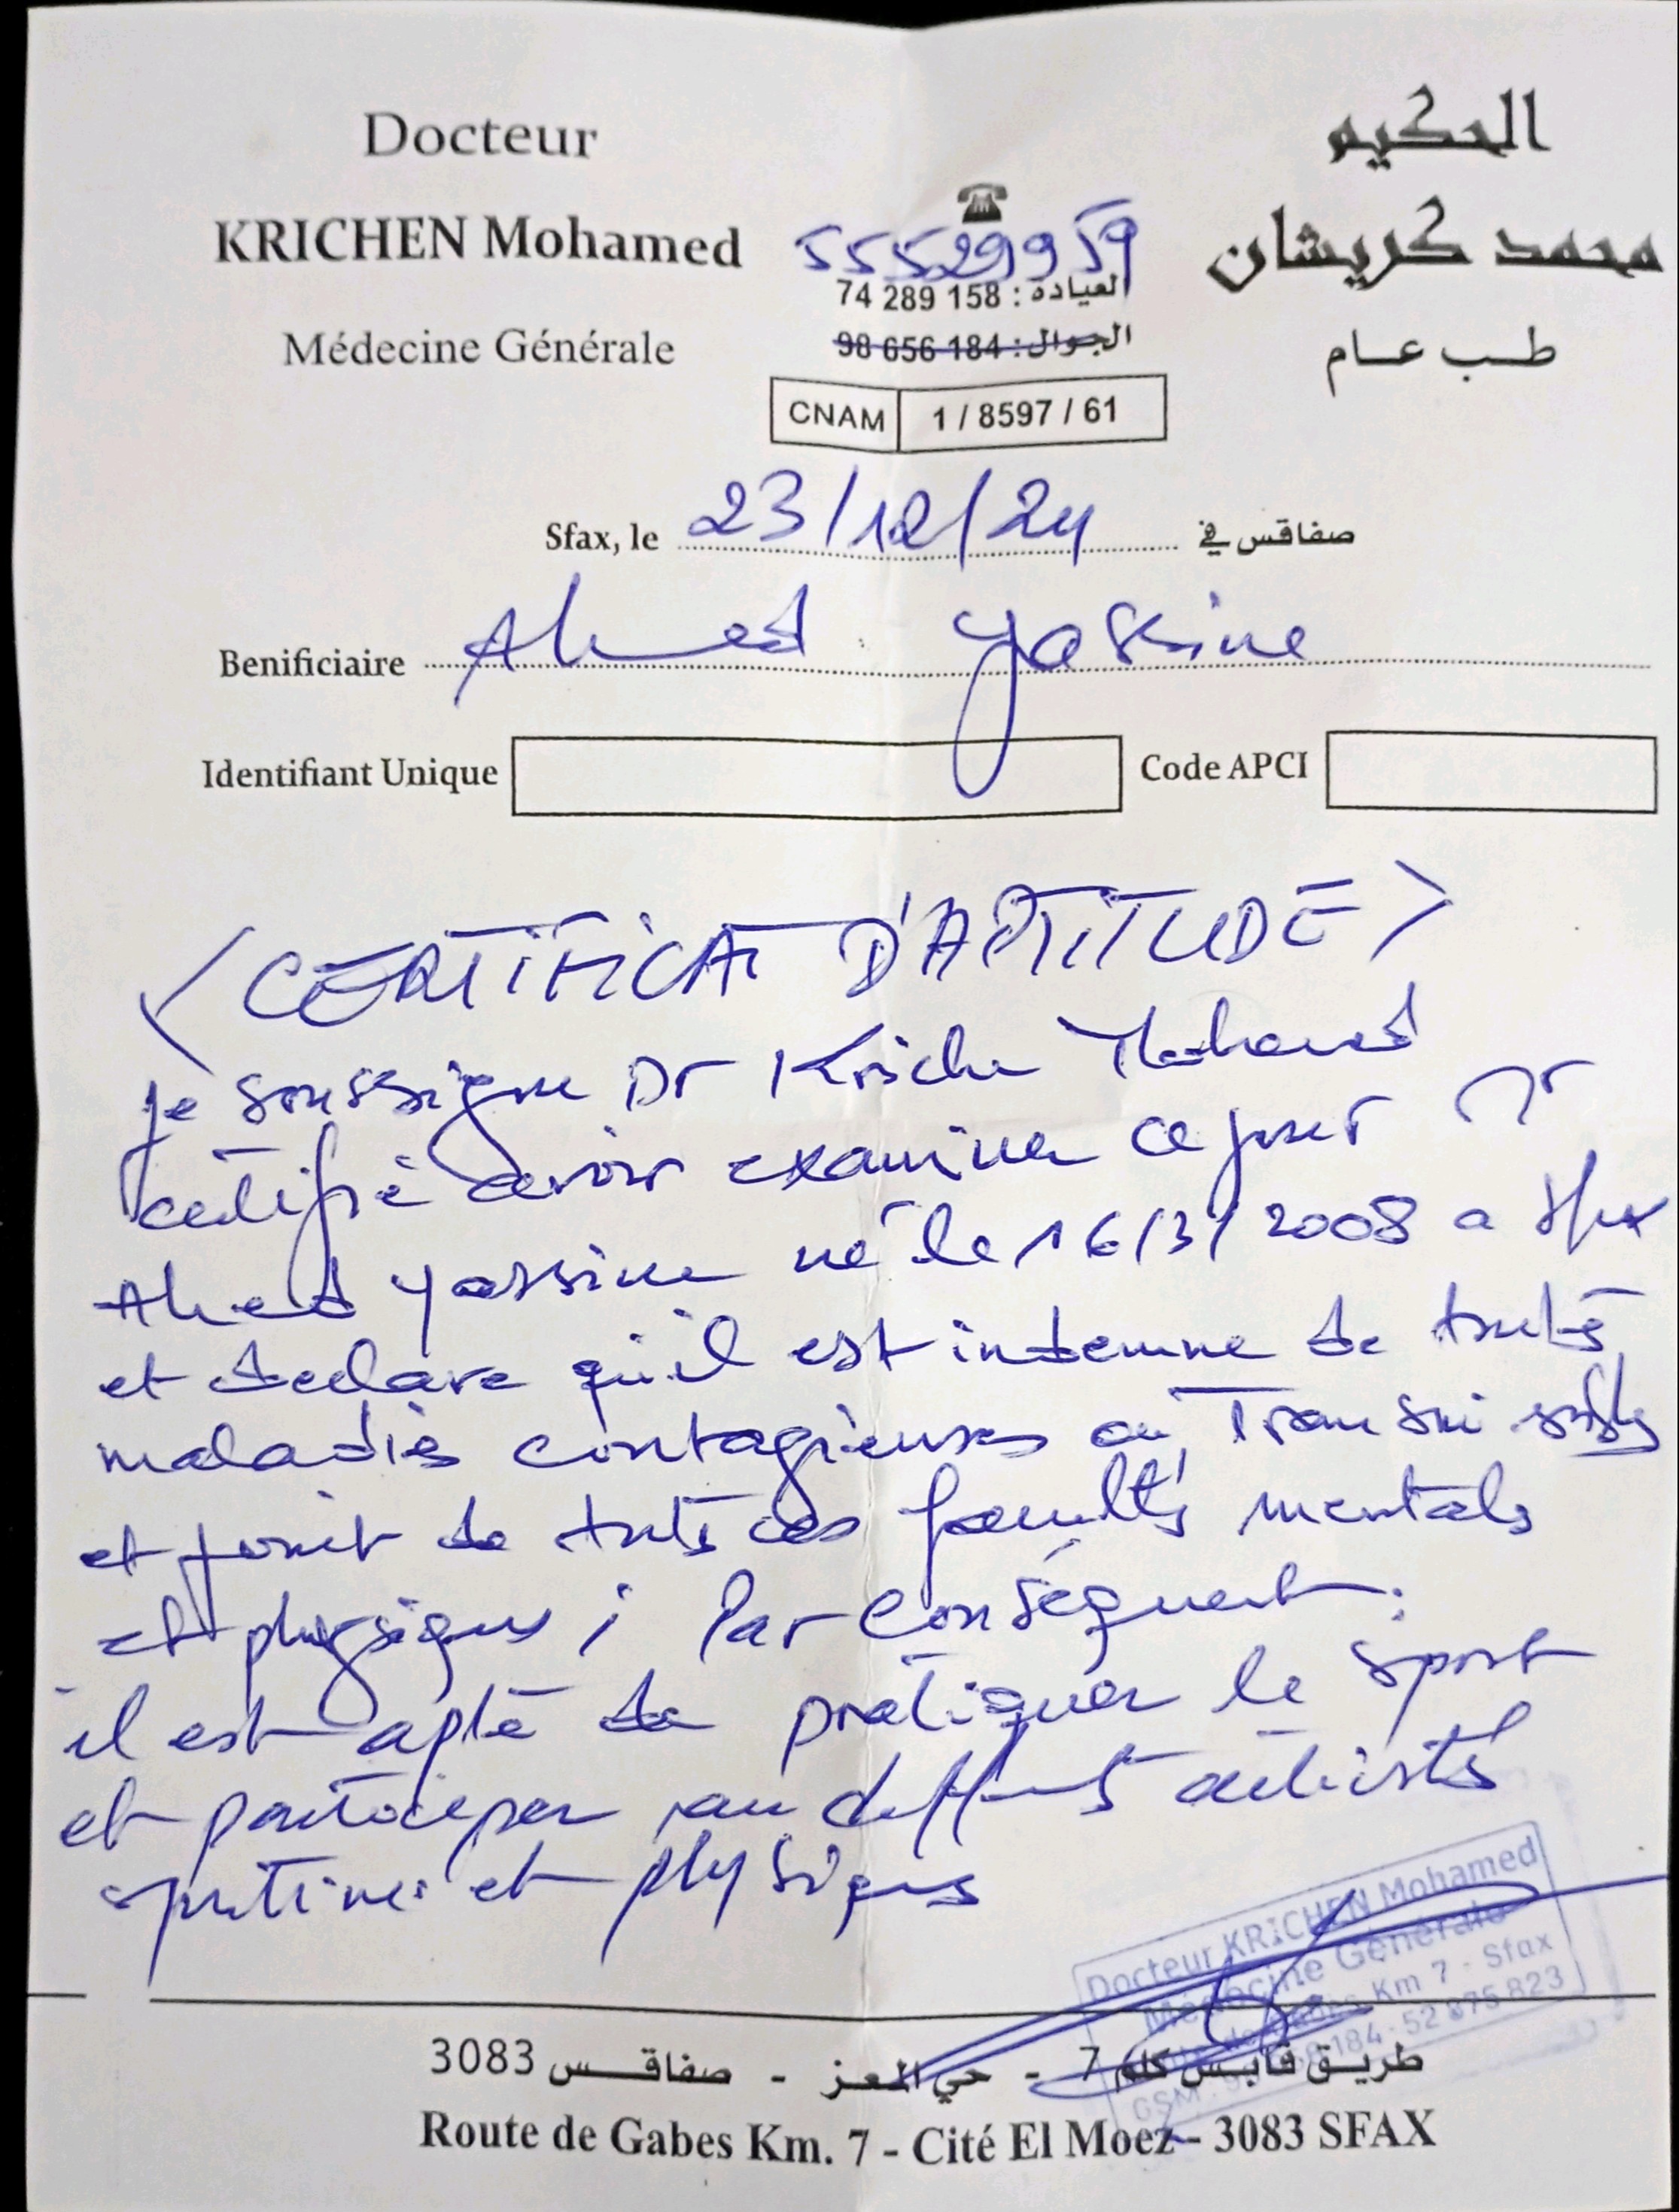 Docteur
الحكيم
KRICHEN Mohamed
55529959
محمد كريشان
العيادة : 74 289 158
Médecine Générale
الجوال : 98 656 184
طب عام
CNAM 1 / 8597 / 61
Sfax, le 23/12/24 صفاقس في
Benificiaire Ahmed Yassine
Identifiant Unique
Code APCI
<CERTIFICAT D'APTITUDE>
Je soussigne Dr Krichen Mohamed
certifié avoir examiner ce jour Mr
Ahmed Yassine né le 16/3/2008 a Sfax
et declare qu'il est indemne de toutes
maladies contagieuses ou Transmissibles
et jouit de toutes ces facultés mentals
et physiques ; Par Conséquent :
il est apte de pratiquer le sport
et participer au différents activités
sportives et physiques
Docteur KRICHEN Mohamed
Médecine Générale
Route de Gabès Km 7 - Sfax
GSM 184 - 52 875 823
طريق قابس كلم 7 - حي المعز - صفاقس 3083
Route de Gabes Km. 7 - Cité El Moez - 3083 SFAX